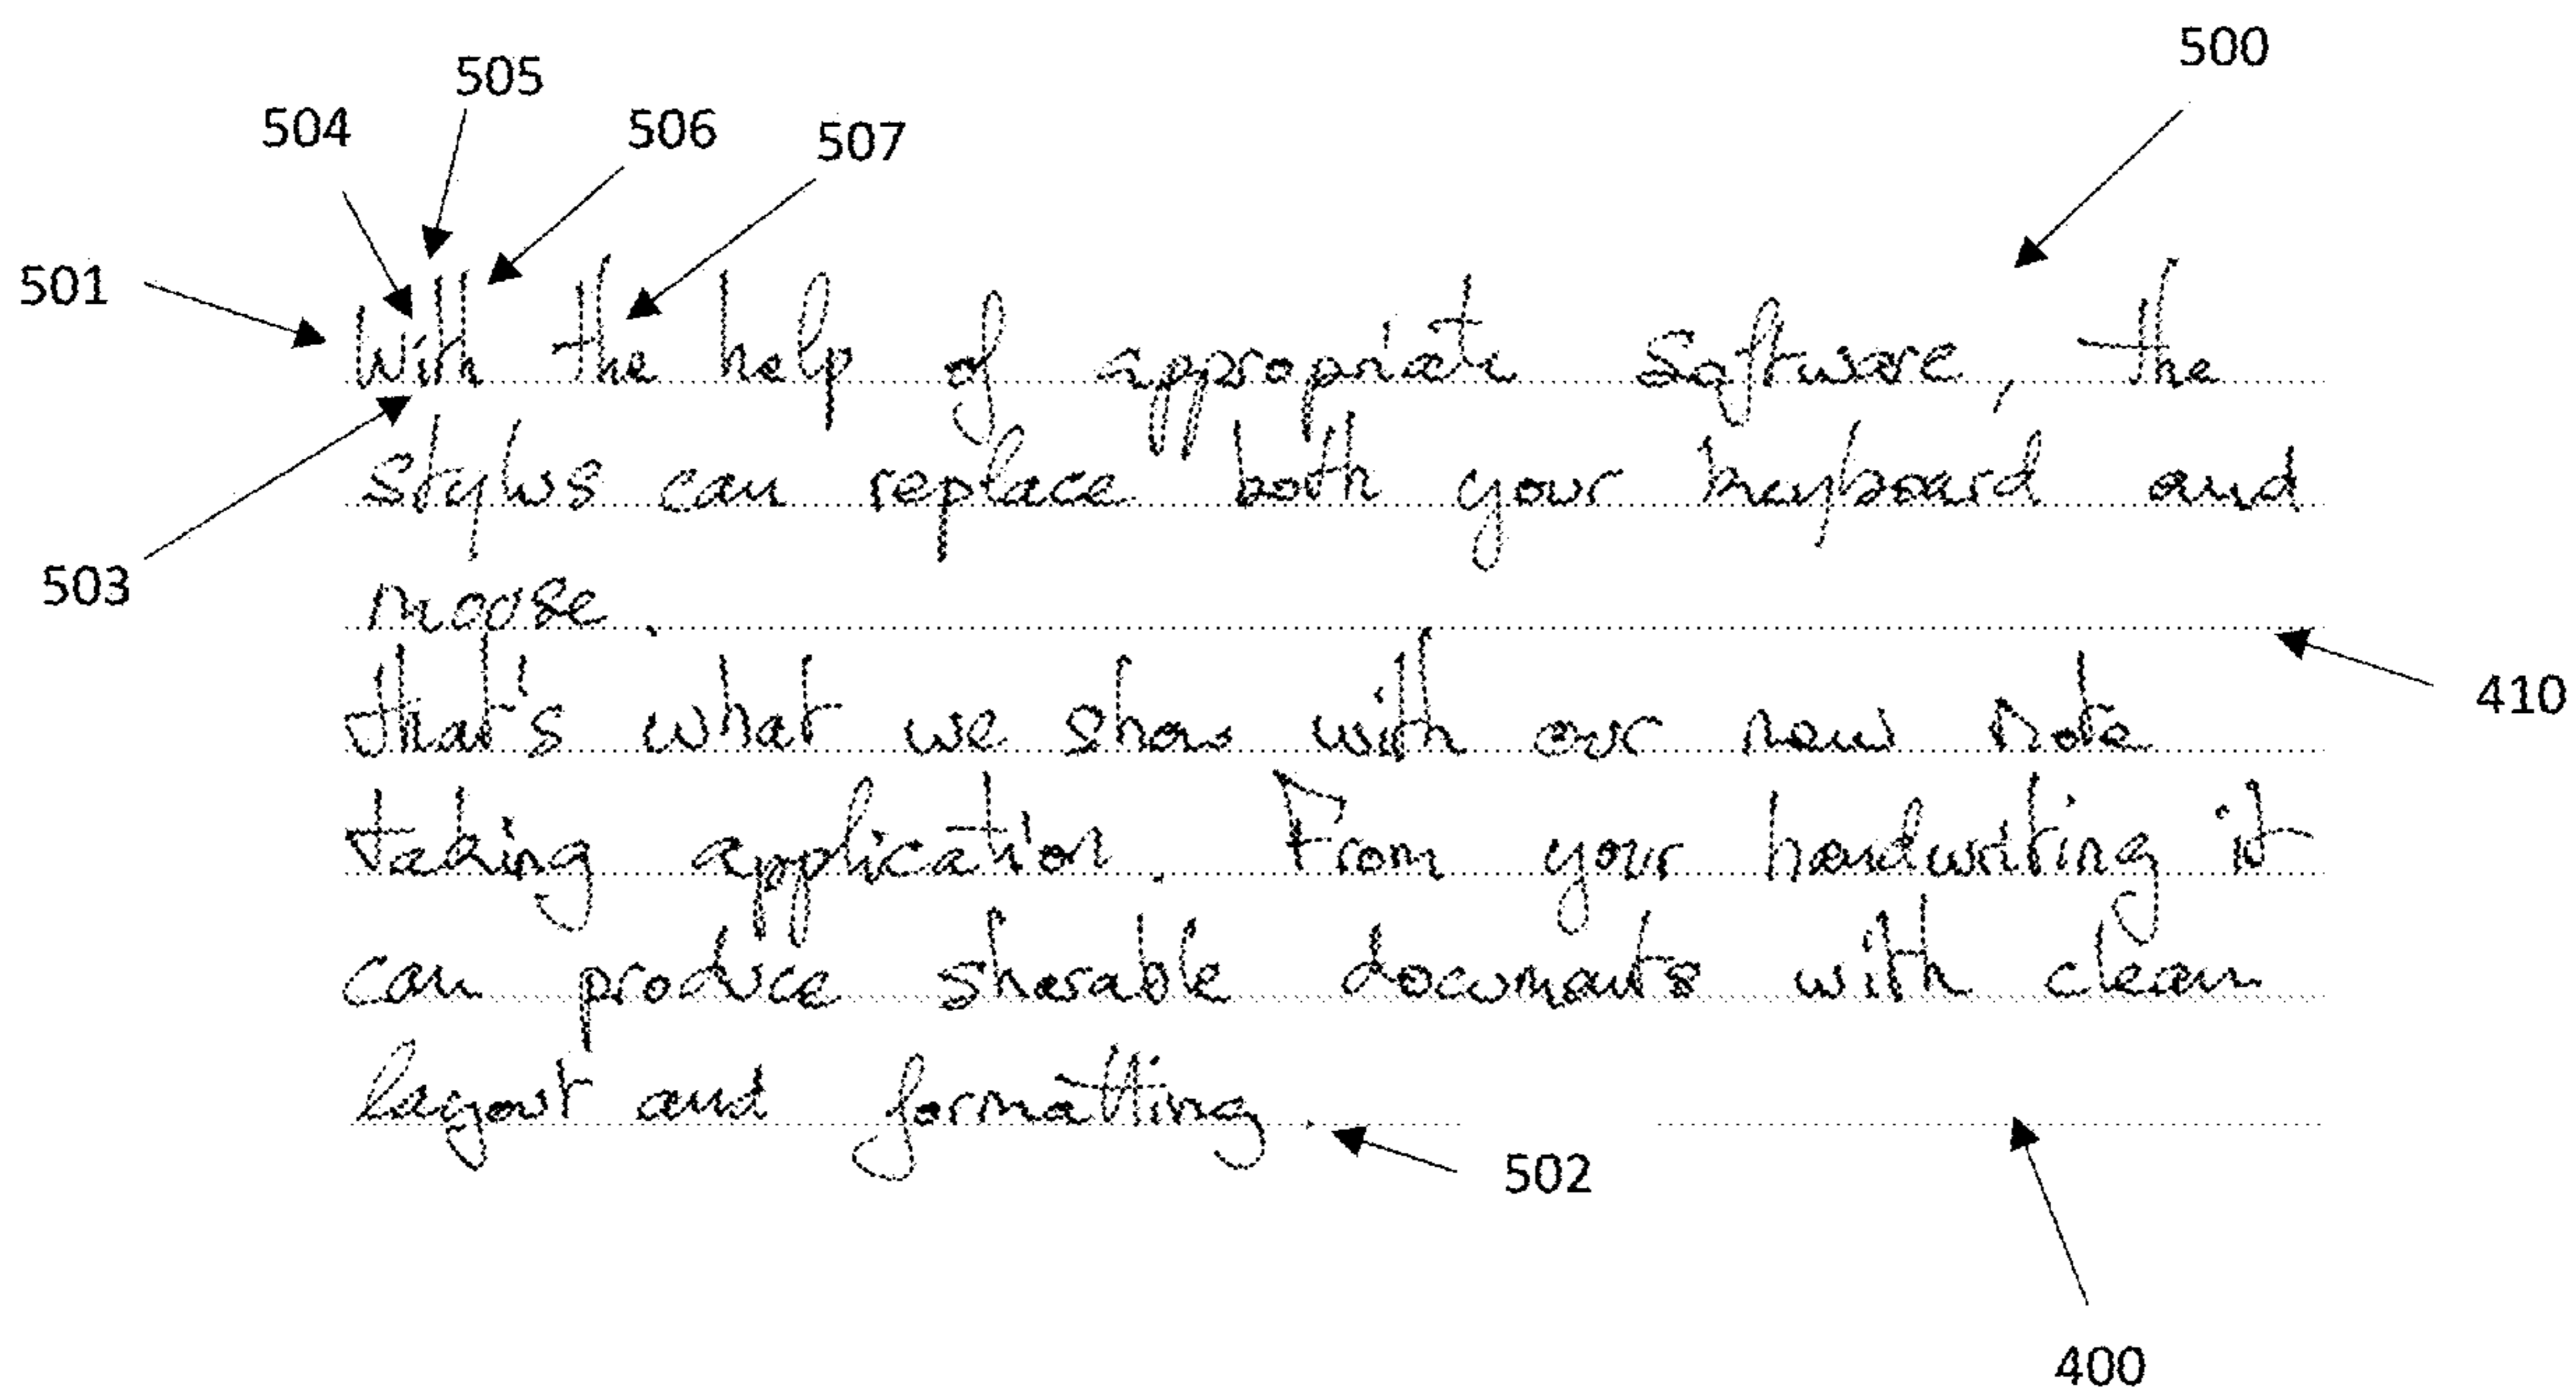 500
505
504 506 507
501
With the help of appropriate Software, the
stylus can replace both your keyboard and
503
mouse.
410
that's what we show with our new note
taking application. From your handwriting it
can produce sharable documents with clean
layout and formatting.
502
400